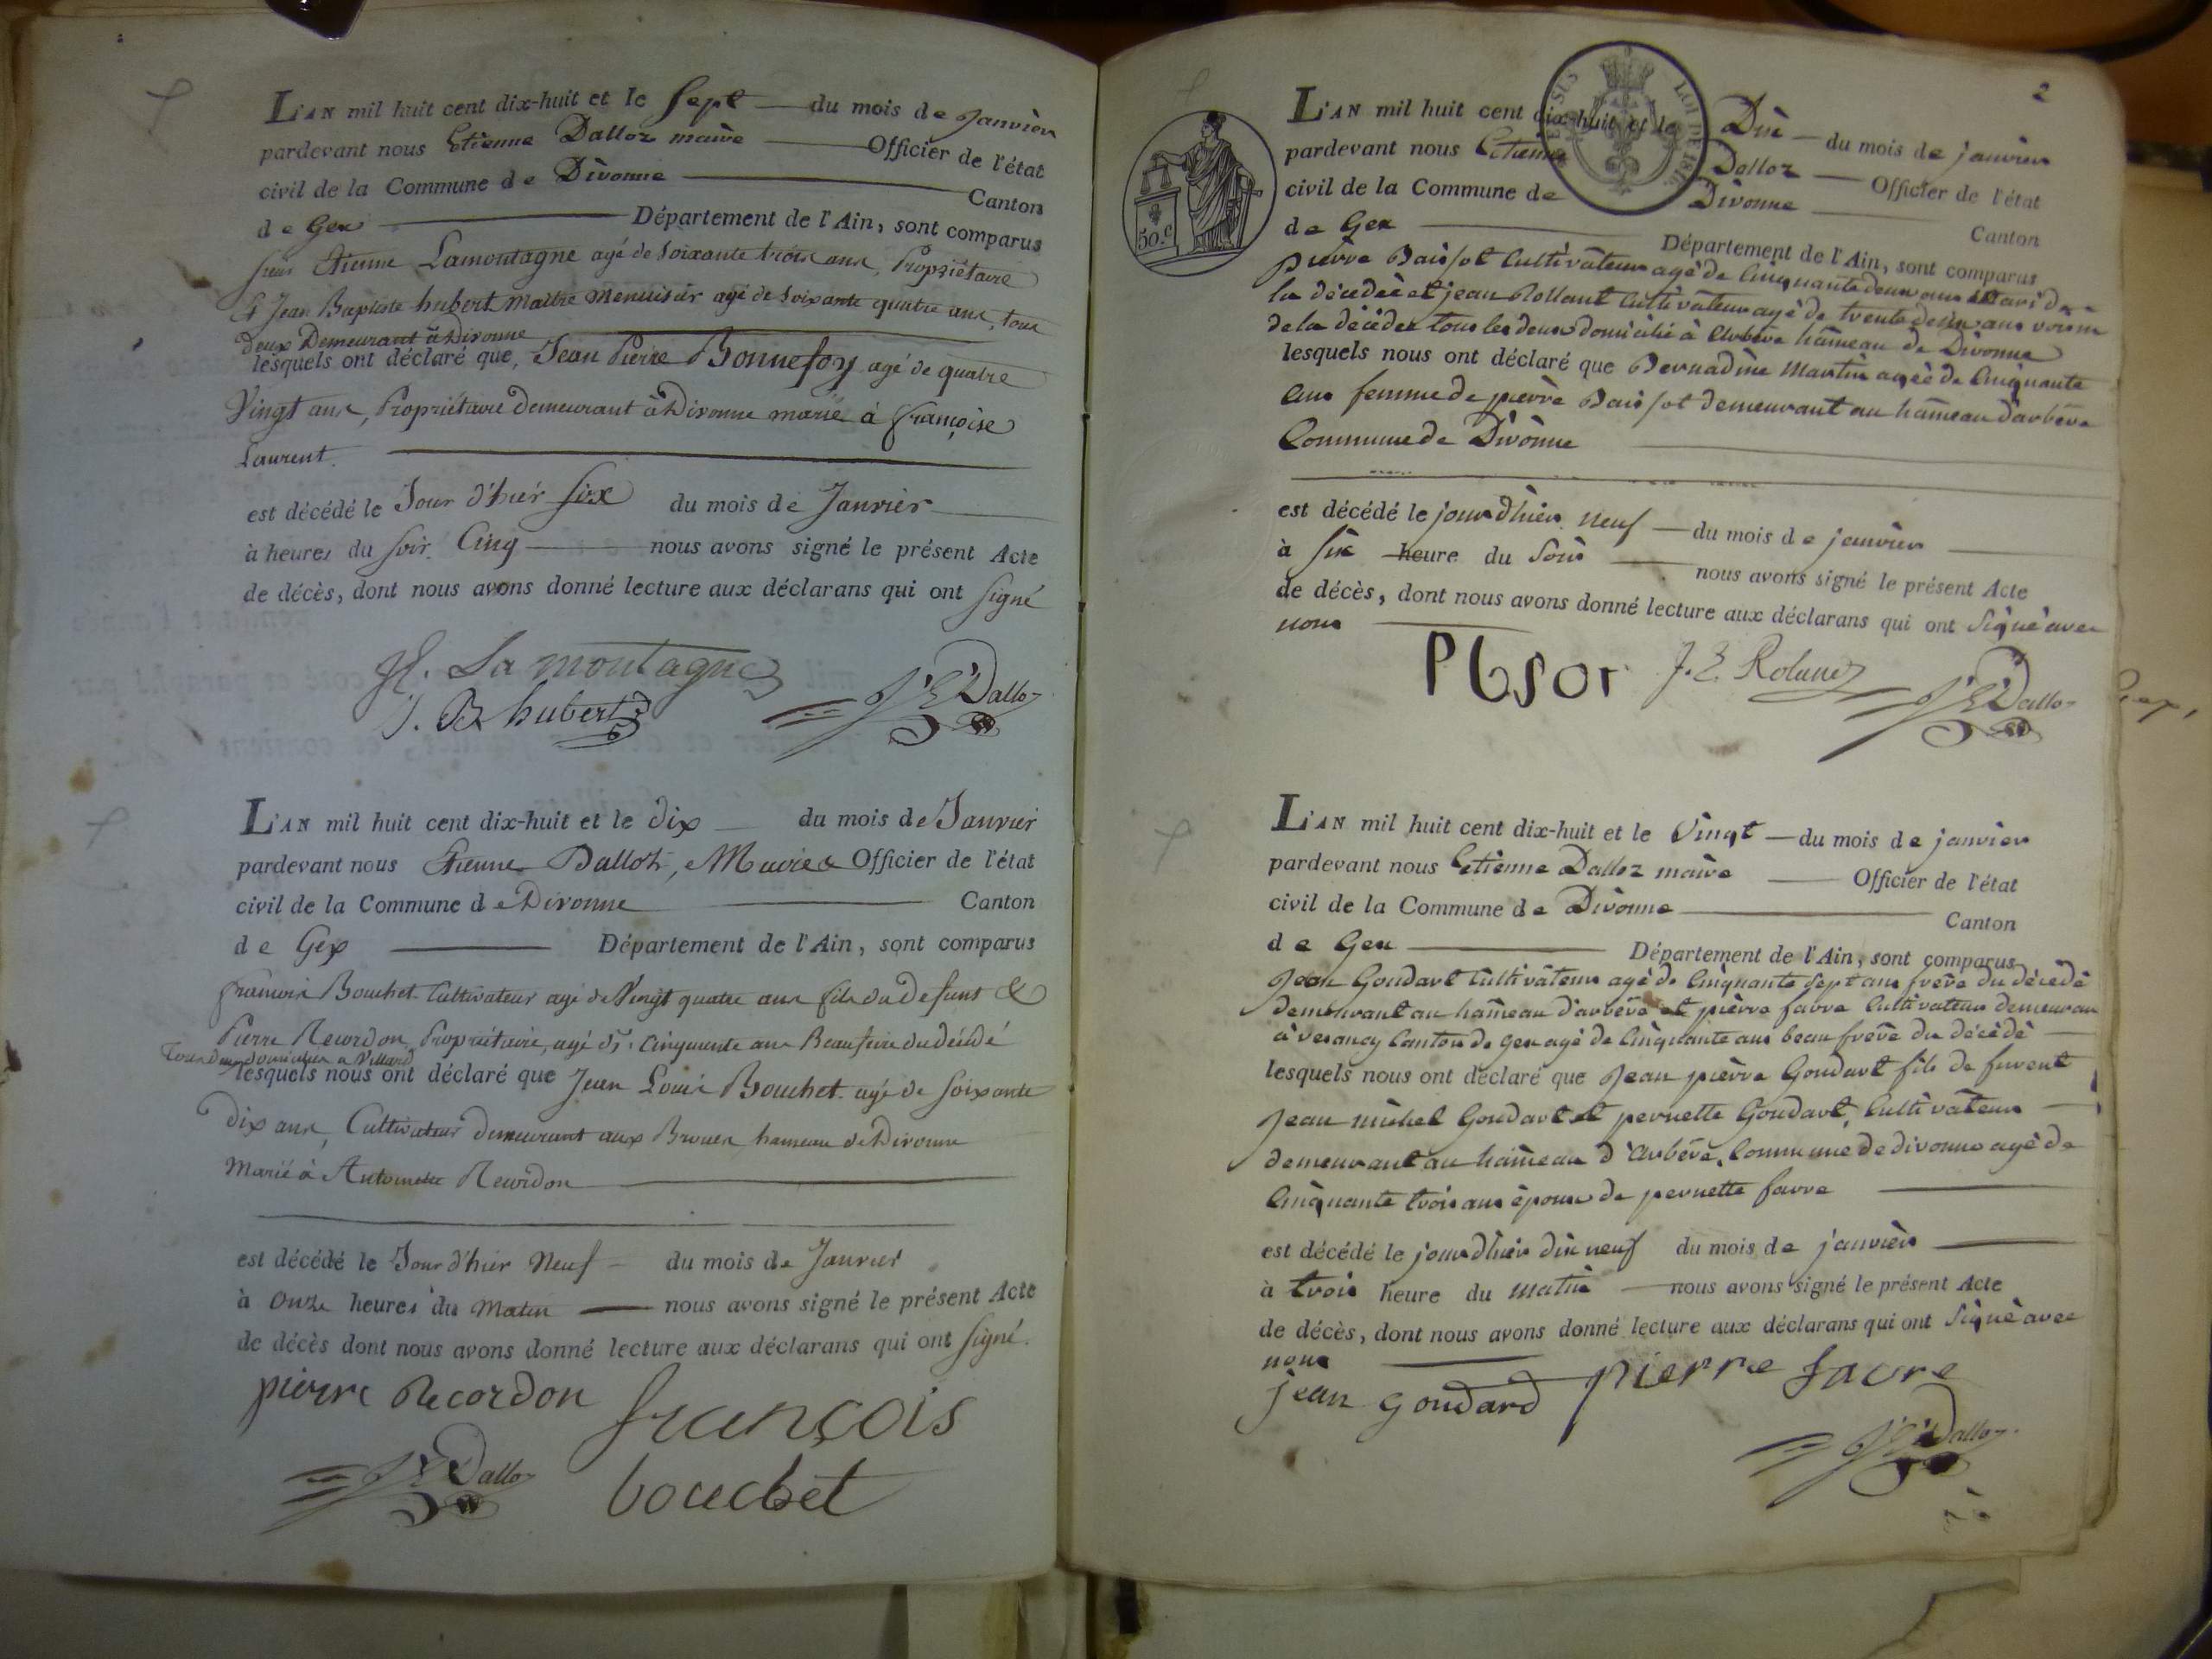 L'AN mil huit cent dix-huit et le sept du mois de Janvier
pardevant nous Etienne Dalloz maire Officier de l'état
civil de la Commune de Divonne Canton
de Gex Département de l'Ain, sont comparus
Etienne Lamontagne agé de Soixante trois ans, Propriétaire
& Jean Baptiste hubert Maitre Menuisier agé de Soixante quatre ans, tous
deux Demeurant à Divonne
lesquels ont déclaré que, Jean Pierre Bonnefoy agé de quatre
Vingt ans, Propriétaire demeurant à Divonne marié à françoise
Laurent.
est décédé le Jour d'hier six du mois de Janvier
à heures du soir Cinq nous avons signé le présent Acte
de décès, dont nous avons donné lecture aux déclarans qui ont signé
La montagne
J. B hubert J E Dalloz
L'AN mil huit cent dix-huit et le dix du mois de Janvier
pardevant nous Etienne Dalloz, Maire Officier de l'état
civil de la Commune de Divonne Canton
de Gex Département de l'Ain, sont comparus
francois Bouchet Cultivateur agé de Vingt quatre ans fils du defunt &
Pierre Recordon, Propriétaire, agé de Cinquante ans Beaufrere du décédé
Tous deux domiciliés a Villard
lesquels nous ont déclaré que Jean Louis Bouchet agé de soixante
dix ans, Cultivateur demeurant aux hameau de Divonne
Marié à Antoinette Recordon
est décédé le Jour d'hier Neuf du mois de Janvier
à Onze heures du Matin nous avons signé le présent Acte
de décès dont nous avons donné lecture aux déclarans qui ont signé.
pierre Recordon françois
J E Dalloz bouchet
2
50.c
L'AN mil huit cent dix-huit et le Dix du mois de janvier
pardevant nous Etienne Dalloz Officier de l'état
civil de la Commune de Divonne Canton
de Gex Département de l'Ain, sont comparus
pierre Baissot Cultivateur agé de Cinquante deux ans Mari de
la décedée et jean Rollant Cultivateur agé de trente deux ans voisin
de la décédée tous les deux domicilié à Arbère hameau de Divonne
lesquels nous ont déclaré que Bernadine Martin agée de Cinquante
ans femme de pierre Baissot demeurant au hameau d'arbère
Commune de Divonne
est décédé le jour d'hier neuf du mois de janvier
à six heure du Soir nous avons signé le présent Acte
de décès, dont nous avons donné lecture aux déclarans qui ont Signé avec
nous
PBSOT J. E. Roland J E Dalloz
L'AN mil huit cent dix-huit et le Vingt du mois de janvier
pardevant nous Etienne Dalloz maire Officier de l'état
civil de la Commune de Divonne Canton
de Gex Département de l'Ain, sont comparus
Jean Goudart Cultivateur agé de Cinquante Sept ans frère du décédé
demeurant au hameau d'arbère et pierre favre Cultivateur demeurant
à vesancy Canton de Gex agé de Cinquante ans beau frère du décédé
lesquels nous ont déclaré que Jean pierre Goudart fils de furent
Jean michel Goudart et pernette Goudart, Cultivateur
demeurant au hameau d'Arbère, Commune de divonne agé de
Cinquante trois ans époux de pernette favre
est décédé le jour d'hier dix neuf du mois de janvier
à trois heure du matin nous avons signé le présent Acte
de décès, dont nous avons donné lecture aux déclarans qui ont Signé avec
nous
jean goudard pierre favre
J E Dalloz